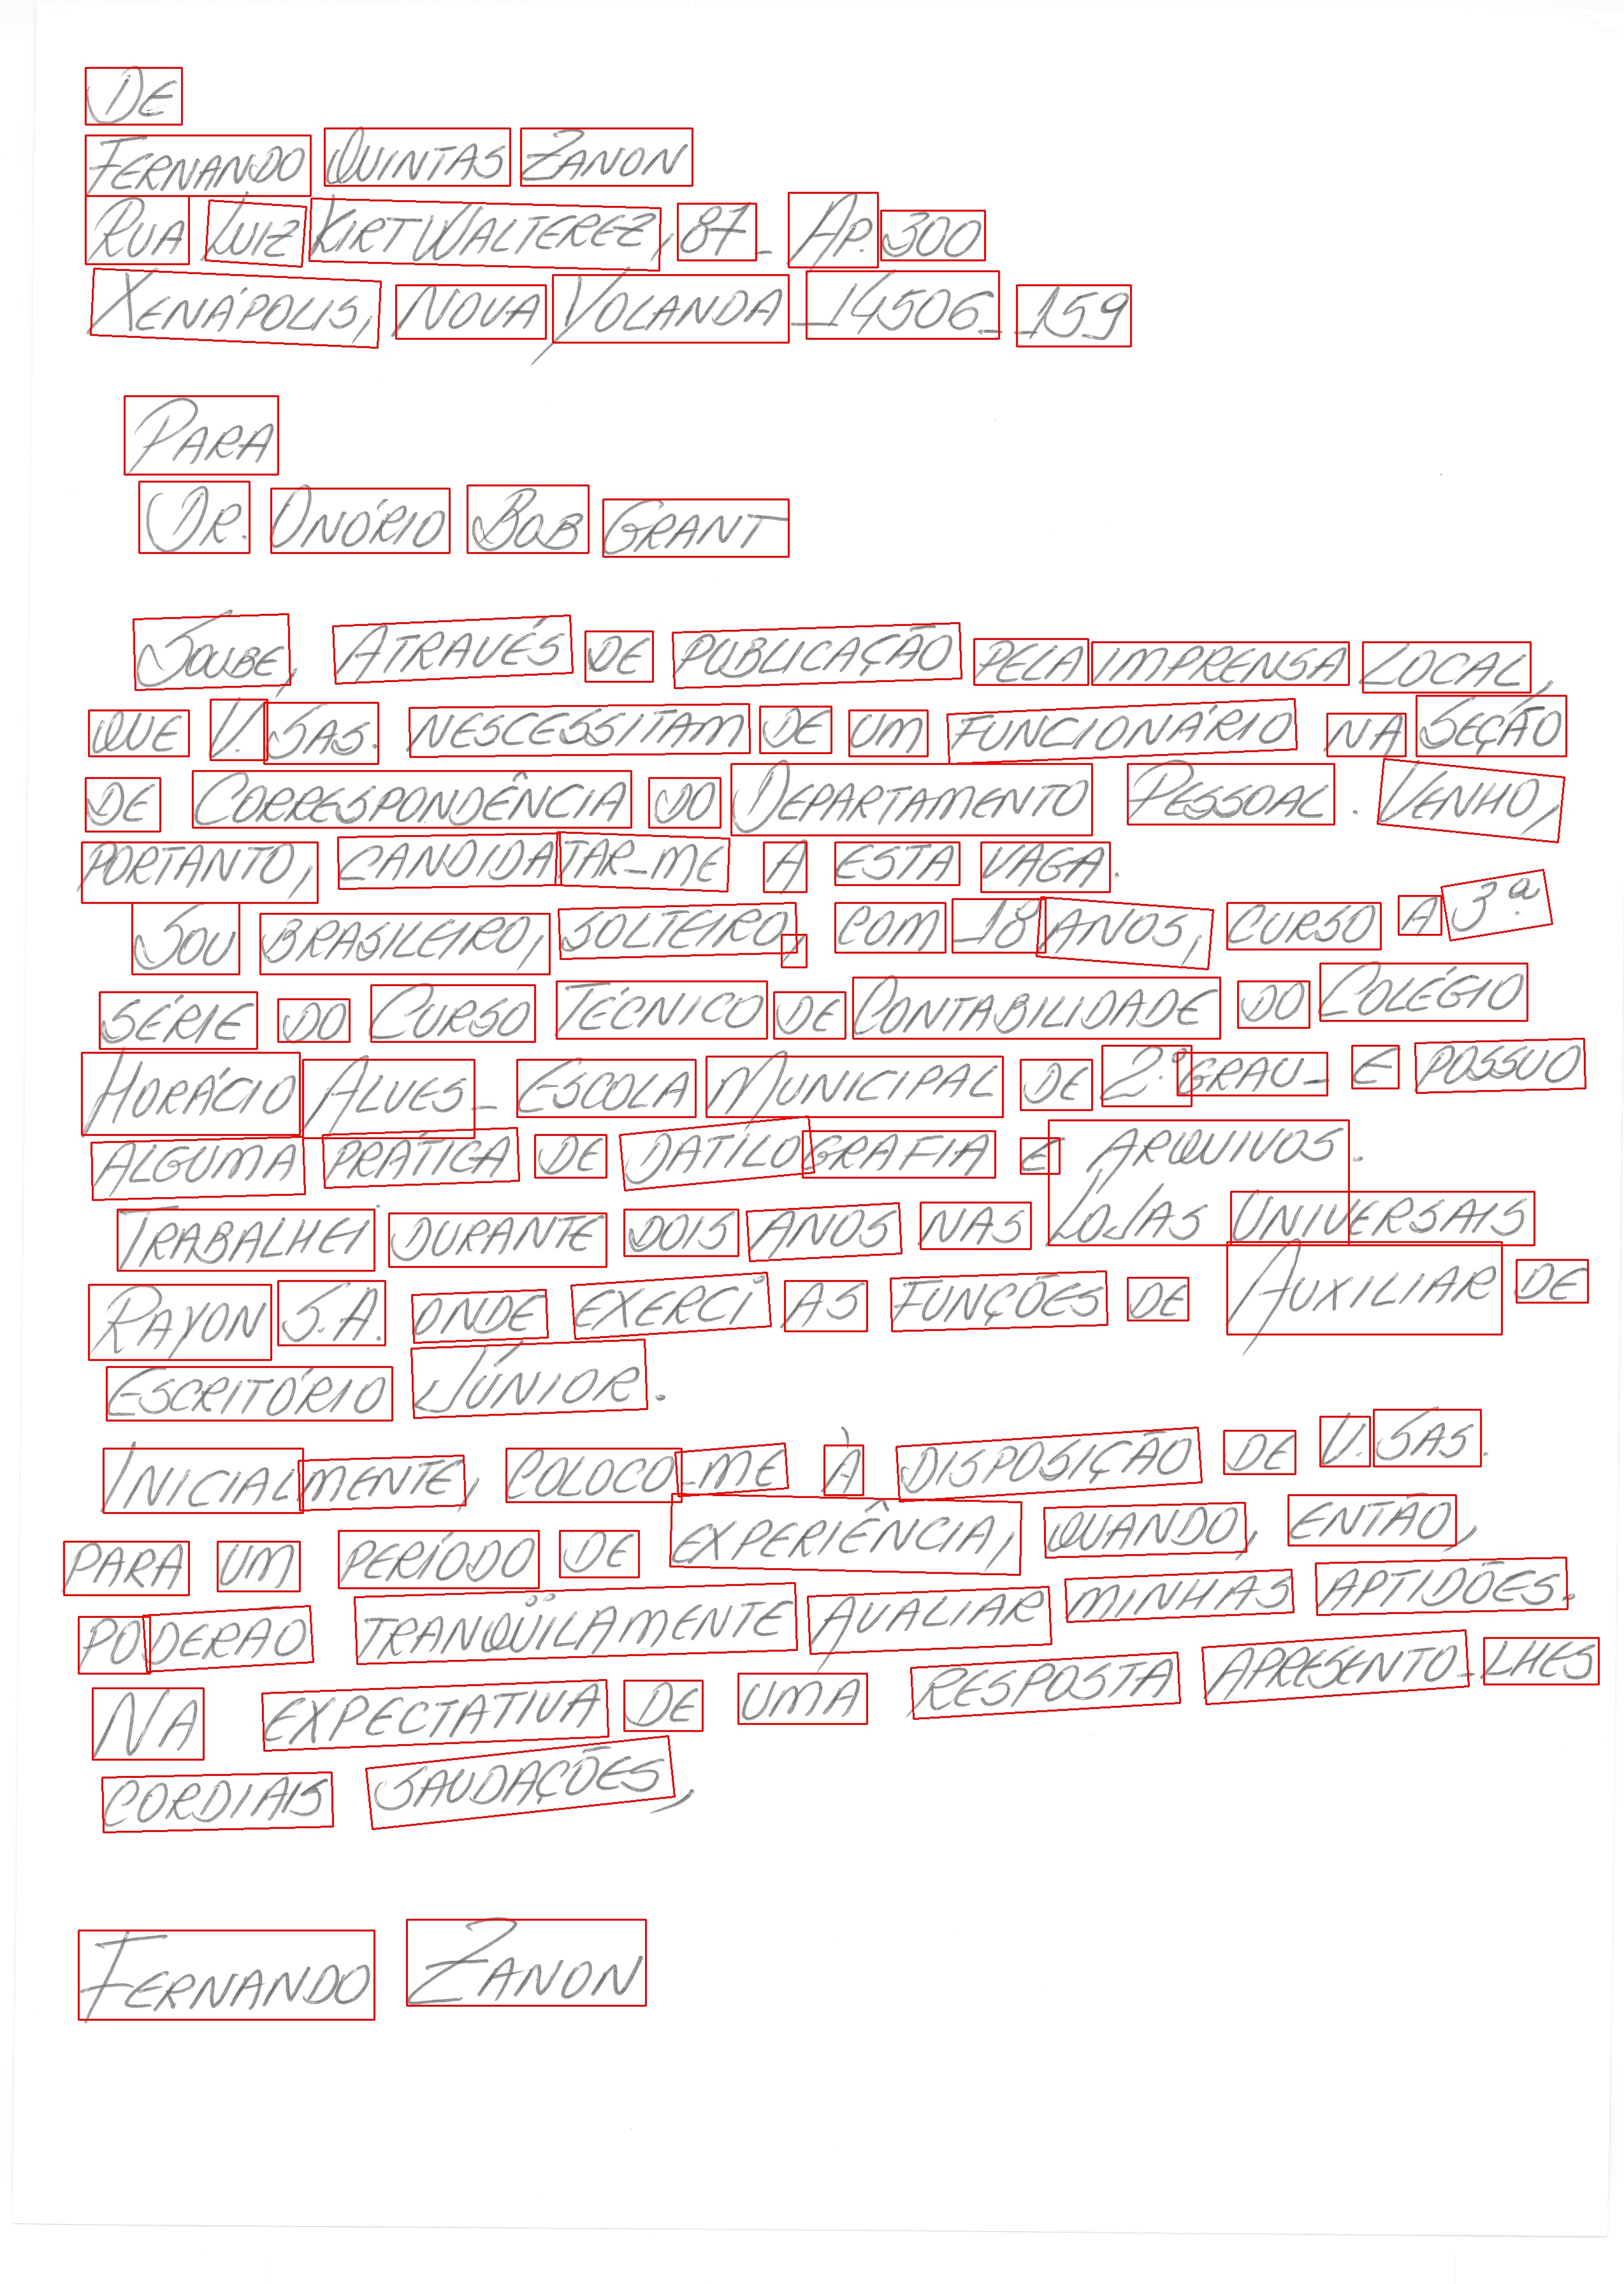 DE
FERNANDO QUINTAS ZANON
RUA LUIZ KIRT WALTEREZ, 87 - AP. 300
XENÁPOLIS, NOVA YOLANDA - 14506 - 159
PARA
DR. ONÓRIO BOB GRANT
SOUBE, ATRAVÉS DE PUBLICAÇÃO PELA IMPRENSA LOCAL,
QUE V. SAS. NESCESSITAM DE UM FUNCIONÁRIO NA SEÇÃO
DE CORRESPONDÊNCIA DO DEPARTAMENTO PESSOAL. VENHO,
PORTANTO, CANDIDATAR-ME A ESTA VAGA.
SOU BRASILEIRO, SOLTEIRO, COM 18 ANOS, CURSO A 3.ª
SÉRIE DO CURSO TÉCNICO DE CONTABILIDADE DO COLÉGIO
HORÁCIO ALVES - ESCOLA MUNICIPAL DE 2.º GRAU - E POSSUO
ALGUMA PRÁTICA DE DATILOGRAFIA E ARQUIVOS.
TRABALHEI DURANTE DOIS ANOS NAS LOJAS UNIVERSAIS
RAYON S.A. ONDE EXERCI AS FUNÇÕES DE AUXILIAR DE
ESCRITÓRIO JÚNIOR.
INICIALMENTE, COLOCO-ME À DISPOSIÇÃO DE V. SAS.
PARA UM PERÍODO DE EXPERIÊNCIA, QUANDO, ENTÃO,
PODERÃO TRANQÜILAMENTE AVALIAR MINHAS APTIDÕES.
NA EXPECTATIVA DE UMA RESPOSTA APRESENTO-LHES
CORDIAIS SAUDAÇÕES,
FERNANDO ZANON